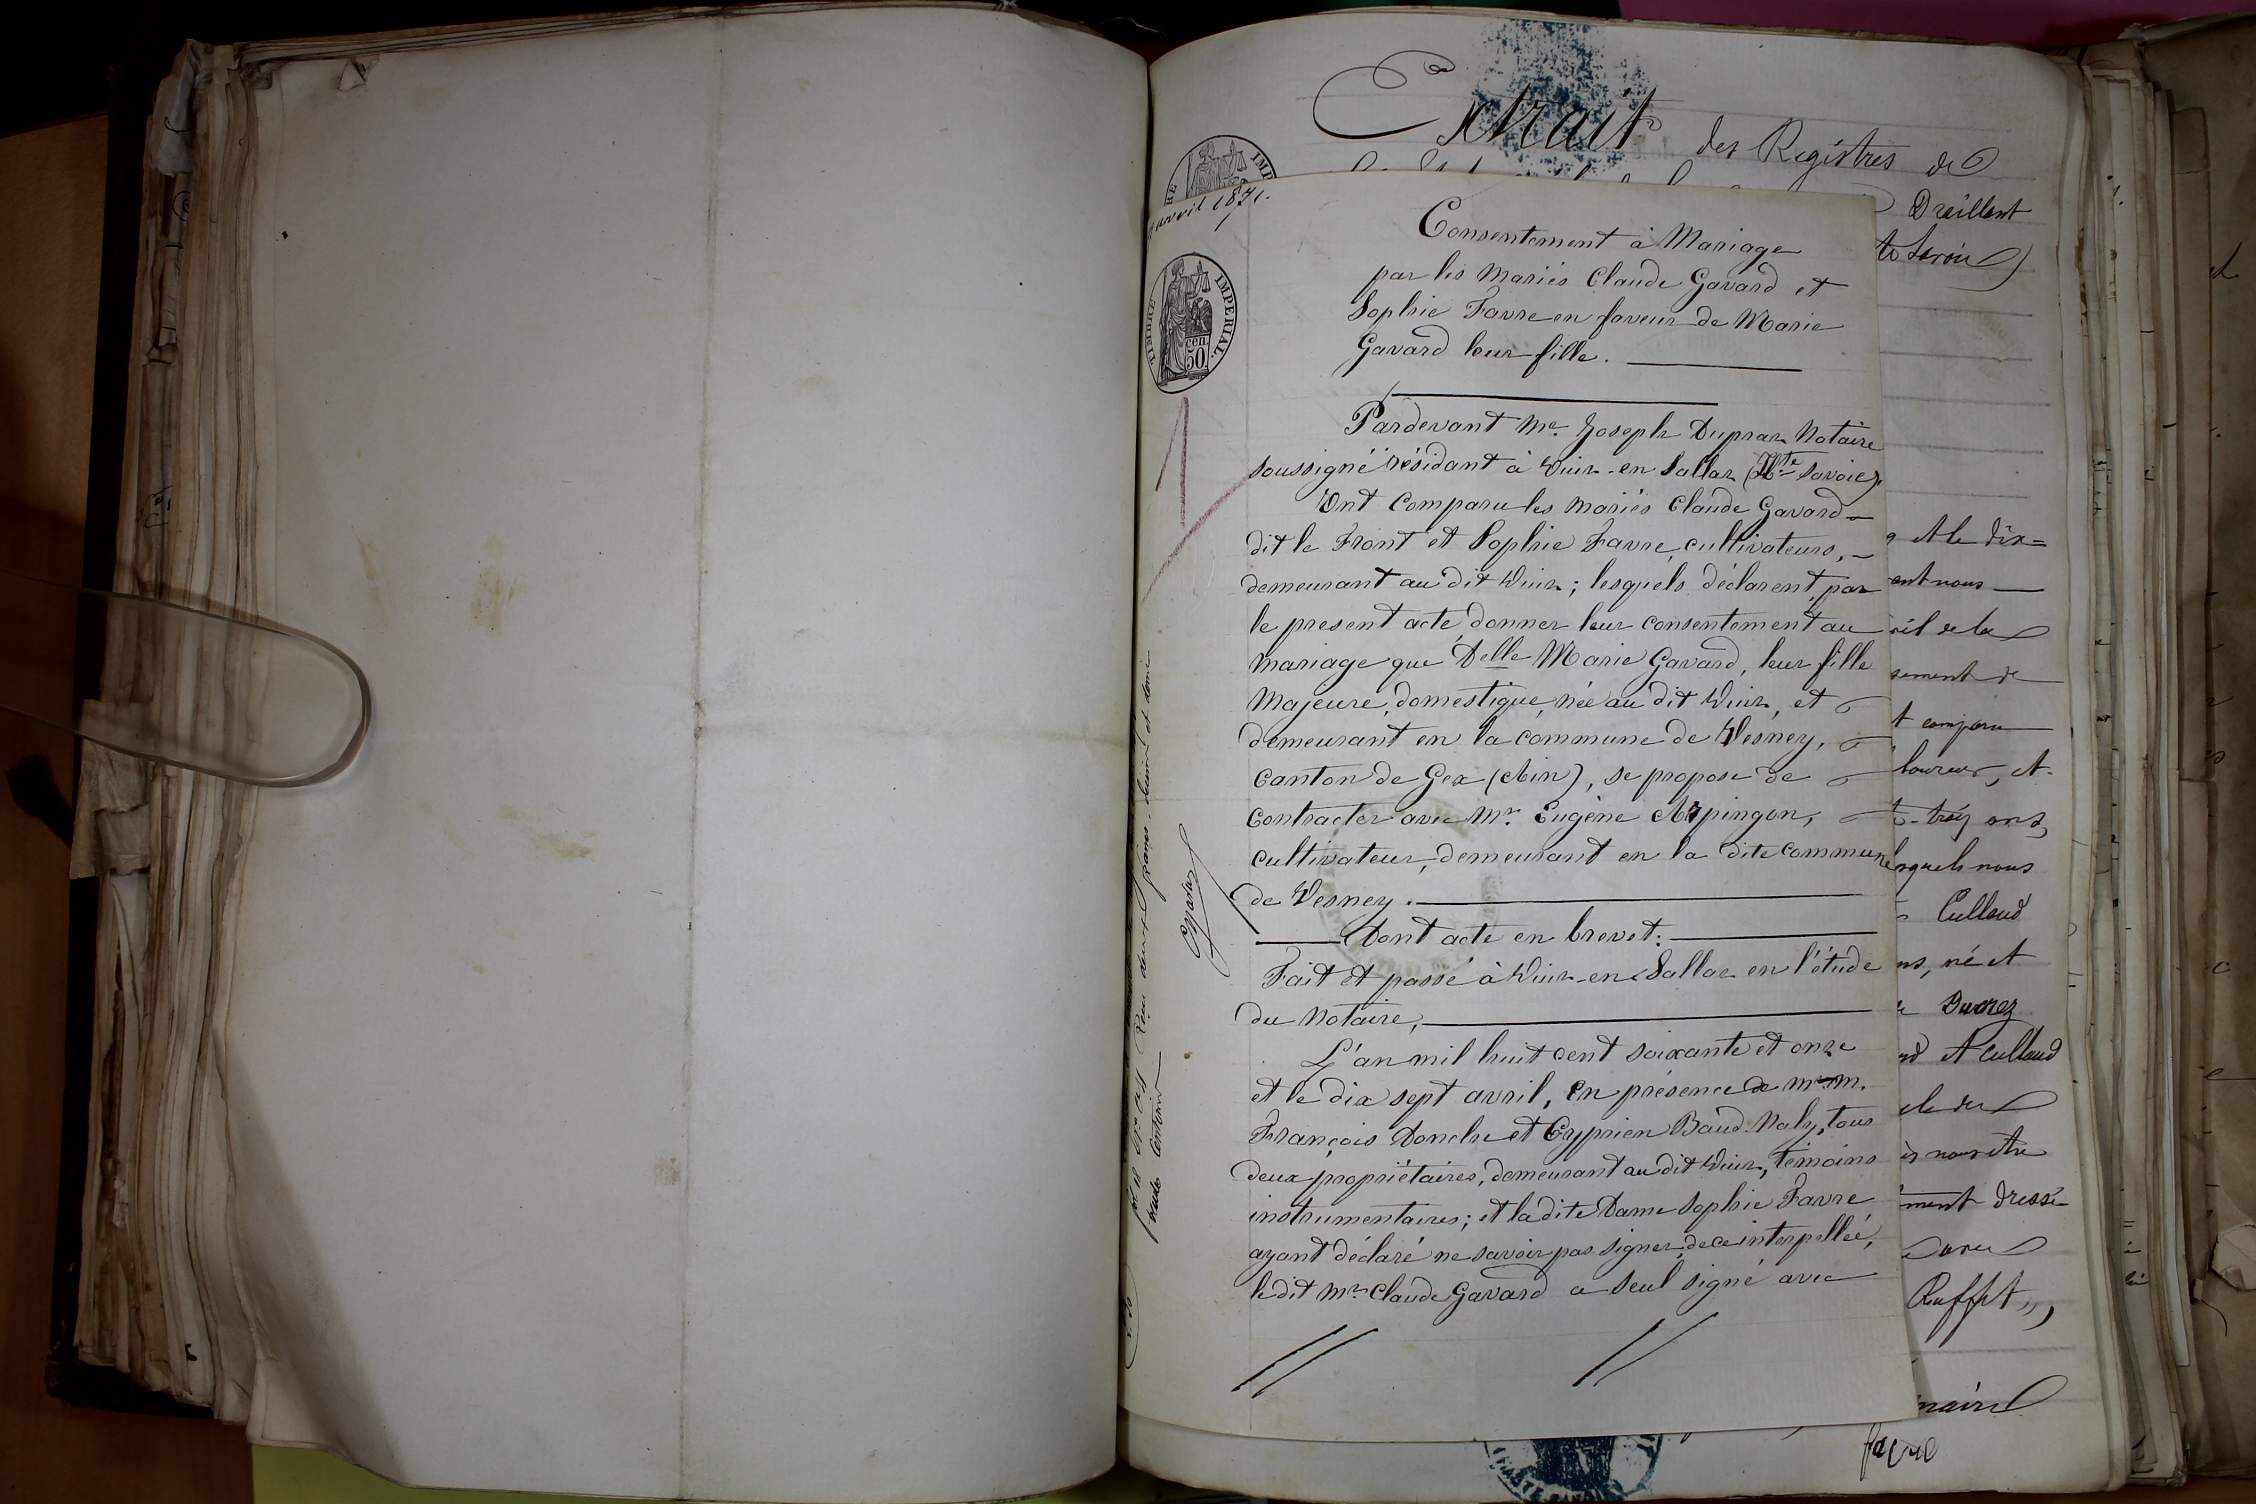 Extrait des Registres de
Draillant
te Savoie)
avril 1871.
TIMBRE IMPERIAL.
50 cen.
Consentement à Mariage
par les mariés Claude Gavard et
Sophie Favre en faveur de Marie
Gavard leur fille.
Pardevant Me. Joseph Dupraz Notaire
soussigné résidant à Viuz-en-Sallaz (Hte Savoie).
Ont comparu les mariés Claude Gavard
dit le Front et Sophie Favre, cultivateurs,
demeurant au dit Viuz; lesquels déclarent par
le present acte donner leur consentement au
mariage que Delle Marie Gavard, leur fille
Majeure, domestique, née au dit Viuz, et
demeurant en la commune de Vesney,
Canton de Gex (Ain), se propose de
Contracter avec Mr. Eugène Arpingon,
cultivateur, demeurant en la dite commune
de Vesney.
Dont acte en brevet:
Fait et passé à Viuz-en-Sallaz en l'étude
du Notaire,
L'an mil huit cent soixante et onze
et le dix sept avril, en présence de M.M.
François Donche et Cyprien Baud-Naly, tous
deux propriétaires, demeurant au dit Viuz, témoins
instrumentaires; et la dite Dame Sophie Favre
ayant déclaré ne savoir pas signer, de ce interpellée,
le dit Mr Claude Gavard a seul signé avec
et le dix=
ant nous
de la
sement de
t comparu
et
t-trois ans,
lesquels nous
Culland
ns, né et
Duvrez
nd et Culland
ment dressé